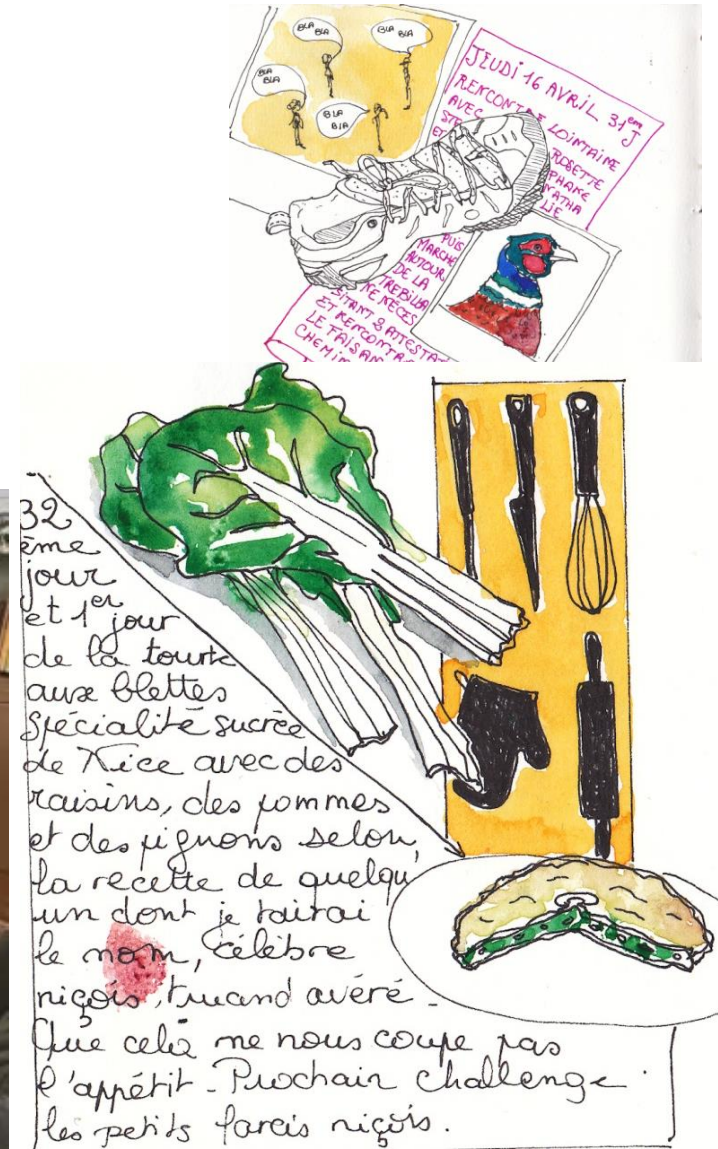 BLA
BLA
BLA
BLA
BLA
BLA
BLA
BLA
JEUDI 16 AVRIL 31em
J
RENCONTRE LOINTAINE
AVEC ROSETTE
STE PHANE
ET NATHA
LIE
PUIS
MARCHE
AUTOUR
DE LA
TREBILLA
NE NÉCES
SITANT 3 ATTESTAT
ET RENCONTR
LE FAISAN
CHEMIN
32
ème
jour
et 1er jour
de la tourte
aux blettes
spécialité sucrée
de Nice avec des
raisins, des pommes
et des pignons selon,
la recette de quelqu
un dont je tairai
le nom, célèbre
niçois, truand avéré.
Que celà ne nous coupe pas
l'appétit - Prochain challenge
les petits farcis niçois.